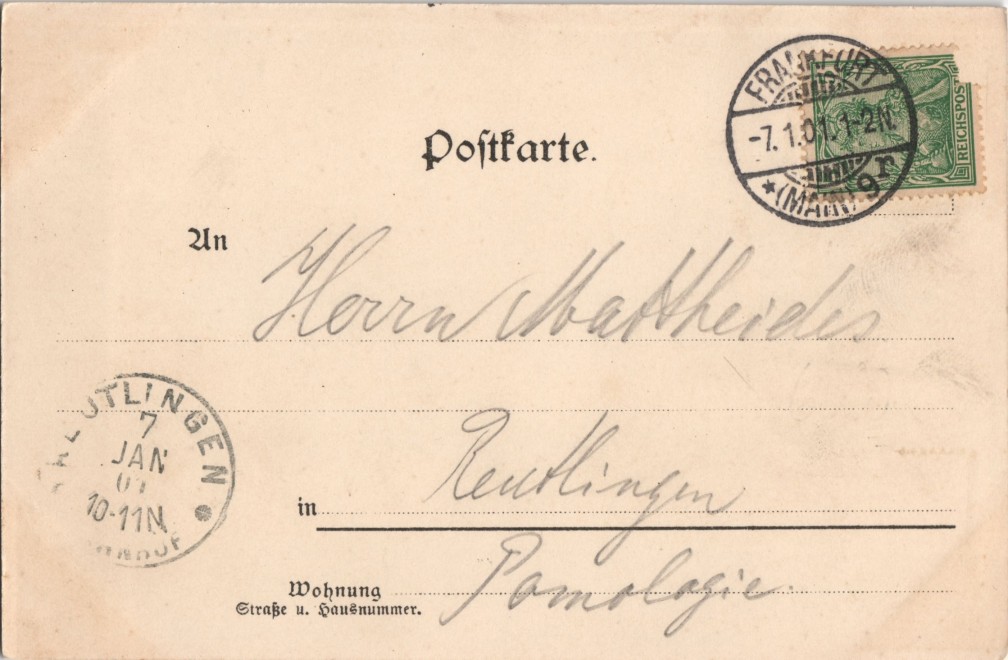 FRANKFURT
-7.1.01.1-2N.
*(MAIN) 9r
REICHSPOST
Postkarte.
An
Herrn Mattheides
REUTLINGEN
7
JAN
01
10-11N
BAHNHOF
in Reutlingen
Wohnung
Straße u. Hausnummer.
Pomologie.